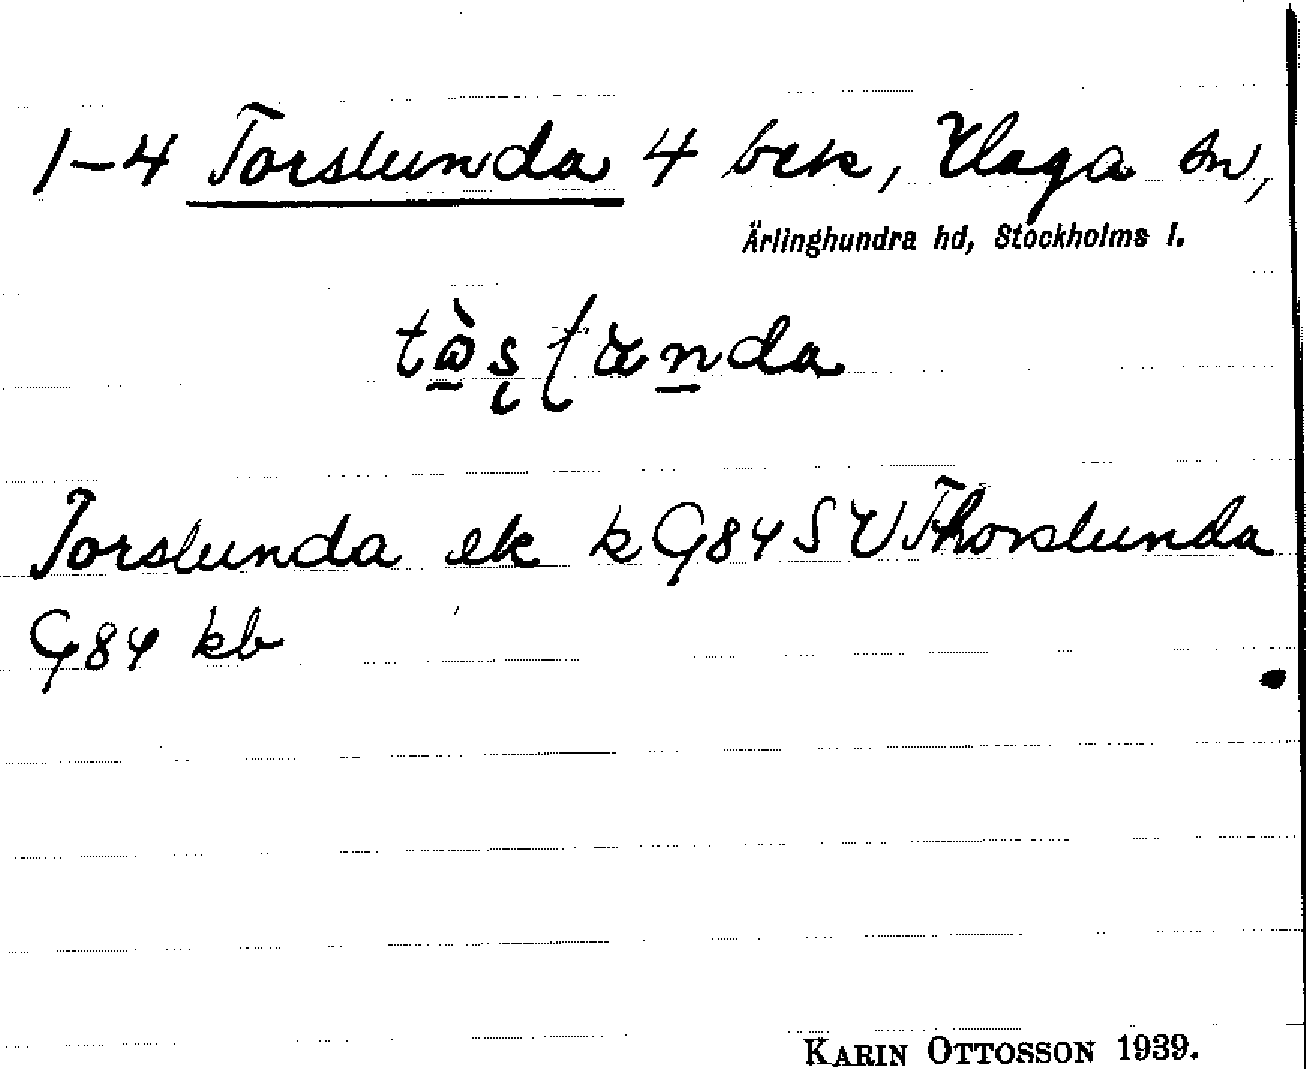 1-4 Torslunda 4 bek, Vlaga sn,
Ärlinghundra hd, Stockholms l.
Torslunda ek k G 84 S V Thorslunda
G 84 kb
KARIN OTTOSSON 1939.